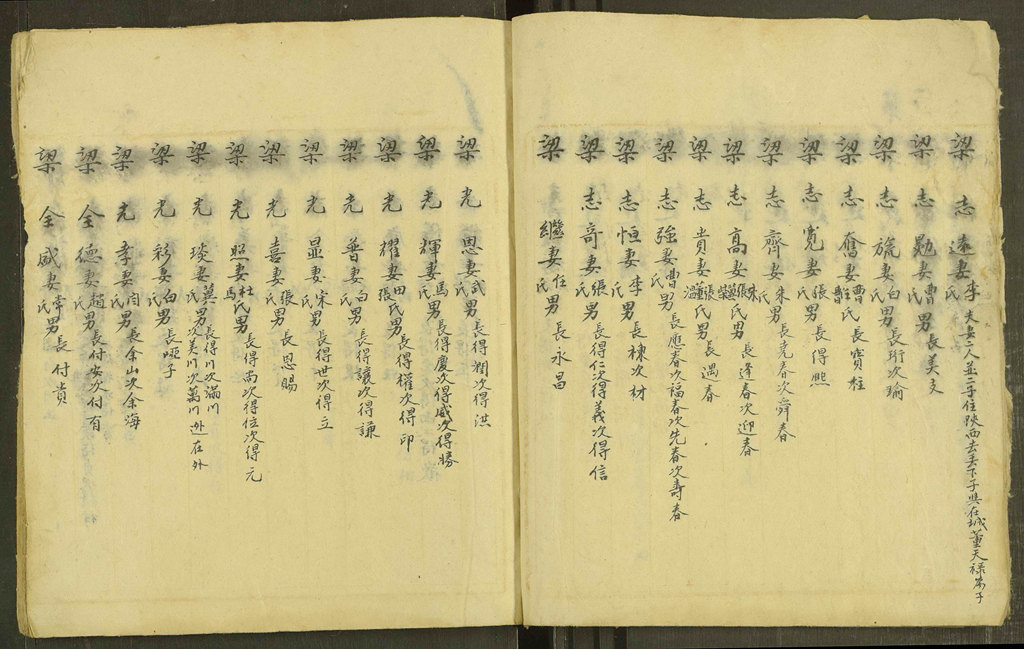 梁志遠妻李氏夫妻二人並二子住陝西去丢下子與在城董天祿為子
梁志勉妻曹氏男長美支
梁志旒妻白氏男長珩次瑜
梁志奮妻曹杜曹氏男長寶柱
梁志寬妻張氏男長得熙
梁志齊妻朱氏男長克春次舜春
梁志高妻宋張樊氏男長逢春次迎春
梁志貴妻張董溫氏男長遇春
梁志強妻曹氏男長應春次福春次先春次壽春
梁志恒妻李氏男長棟次材
梁志奇妻張氏男長得仁次得義次得信
梁繼妻任氏男長永昌
梁光恩妻武氏男長得潤次得洪
梁光輝妻馬氏男長得慶次得威次得勝
梁光耀妻田張氏男長得權次得印
梁光普妻白氏男長得讓次得謙
梁光显妻宋氏男長得世次得立
梁光喜妻張氏男長恩賜
梁光照妻杜馬氏男長得尚次得位次得元
梁光琰妻冀氏男長得川次滿川次美川次萬川外在外
梁光彩妻白氏男長啞子
梁光孝妻閆氏男長余山次余海
梁全德妻趙氏男長付安次付有
梁全威妻常氏男長付貴